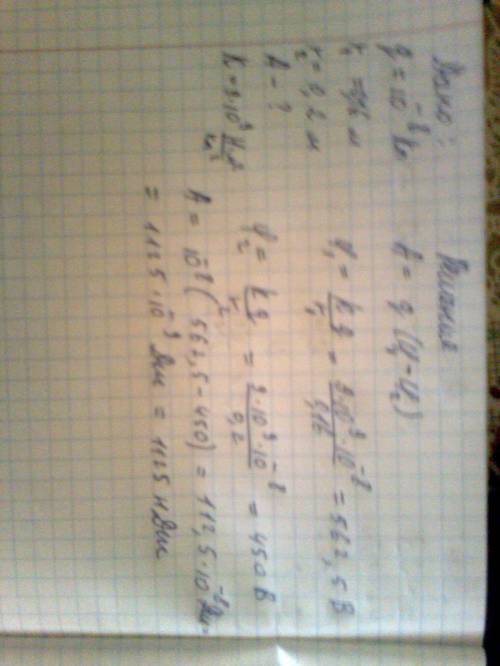 Дано:
q = 10⁻⁸ Кл
r₁ = 0,16 м
r₂ = 0,2 м
A - ?
K = 9·10⁹ Нм²/Кл²
Решение
A = q (φ₁ - φ₂)
φ₁ = kq/r₁ = 9·10⁹·10⁻⁸/0,16 = 562,5 В
φ₂ = kq/r₂ = 9·10⁹·10⁻⁸/0,2 = 450 В
A = 10⁻⁸ (562,5 - 450) = 112,5·10⁻⁸ Дж =
= 1125·10⁻⁹ Дж = 1125 нДж